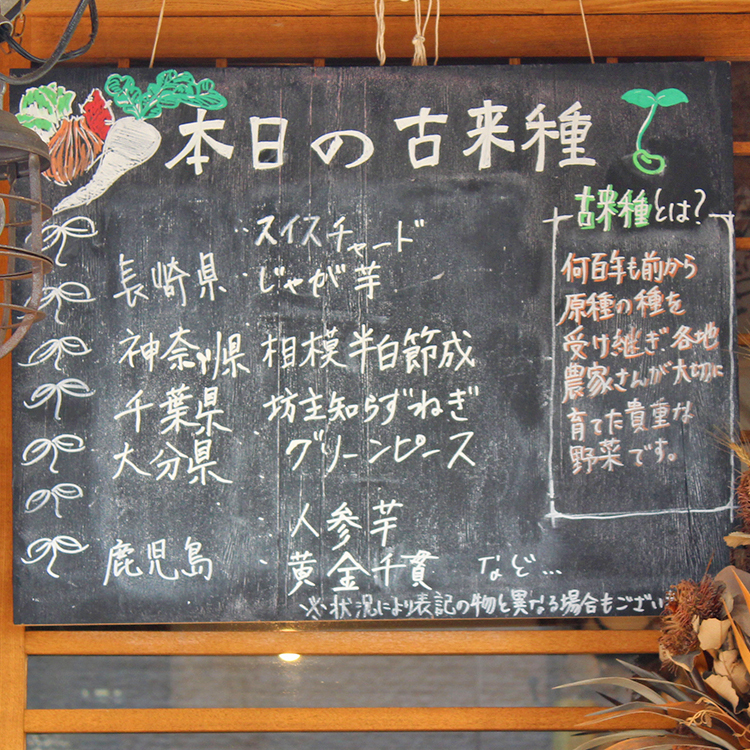 本日の古来種
スイスチャード
長崎県 じゃが芋
神奈川県 相模半白節成
千葉県 坊主知らずねぎ
大分県 グリーンピース
人参芋
鹿児島 黄金千貫 など…
※状況により表記の物と異なる場合もござい
古来種とは?
何百年も前から
原種の種を
受け継ぎ各地
農家さんが大切に
育てた貴重な
野菜です。